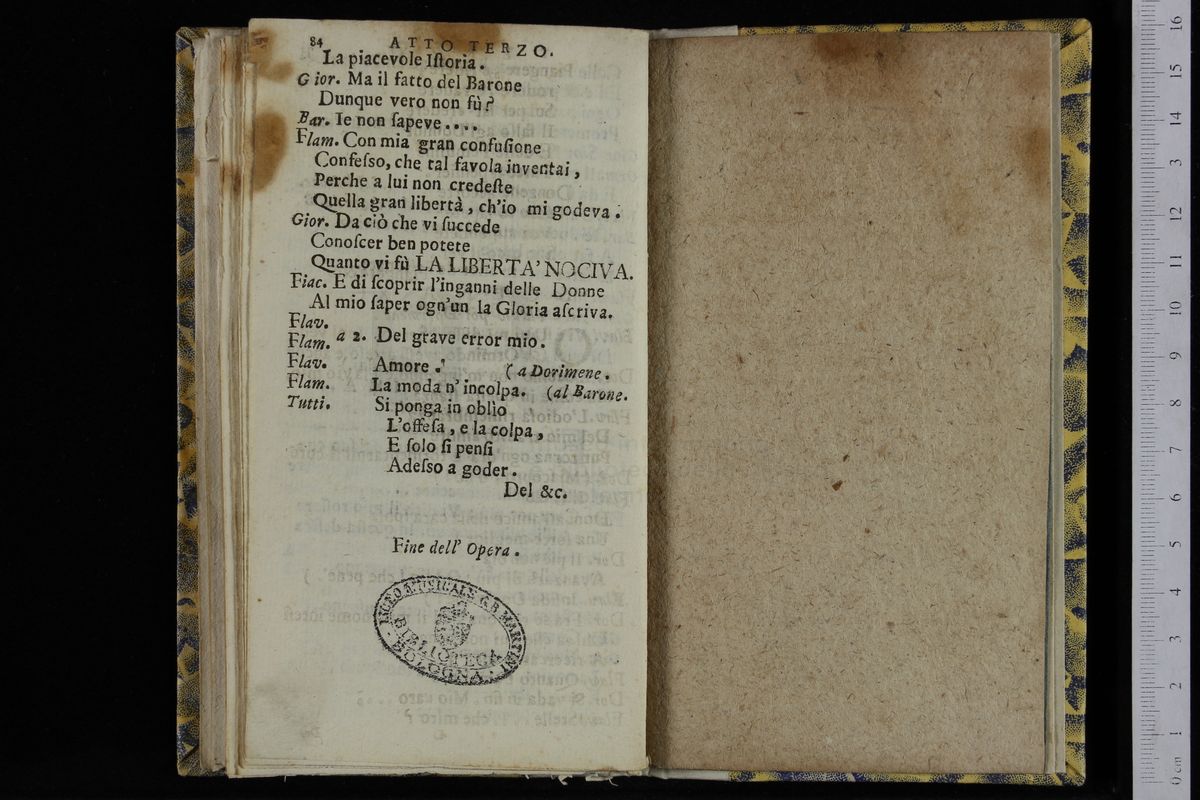 84 ATTO TERZO.
La piacevole Iſtoria.
Gior. Ma il fatto del Barone
Dunque vero non fù?
Bar. Ie non ſapeve ....
Flam. Con mia gran confuſione
Confeſſo, che tal favola inventai,
Perche a lui non credeſte
Quella gran libertà, ch'io mi godeva.
Gior. Da ciò che vi ſuccede
Conoſcer ben potete
Quanto vi fù LA LIBERTA' NOCIVA.
Fiac. E di ſcoprir l'inganni delle Donne
Al mio ſaper ogn'un la Gloria aſcriva.
Flav.
Flam. a 2. Del grave error mio.
Flav. Amore. (a Dorimene.
Flam. La moda n'incolpa. (al Barone.
Tutti. Si ponga in oblìo
L'offeſa, e la colpa,
E ſolo ſi penſi
Adeſſo a goder.
Del &c.
Fine dell' Opera.
LICEO MUSICALE G.B. MARTINI
BIBLIOTECA
BOLOGNA
0 cm 1 2 3 4 5 6 7 8 9 10 11 12 13 14 15 16